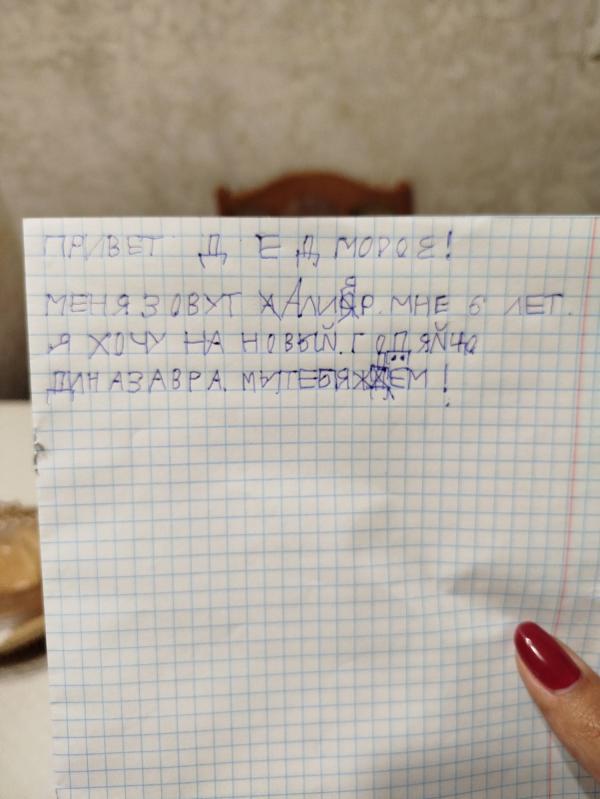 ПРИВЕТ ДЕД МОРОЗ!
МЕНЯ ЗОВУТ МНЕ 6 ЛЕТ.
Я ХОЧУ НА НОВЫЙ ГОД ЯЙЦО
ДИНАЗАВРА. МЫ ТЕБЯ ЖДЁМ!